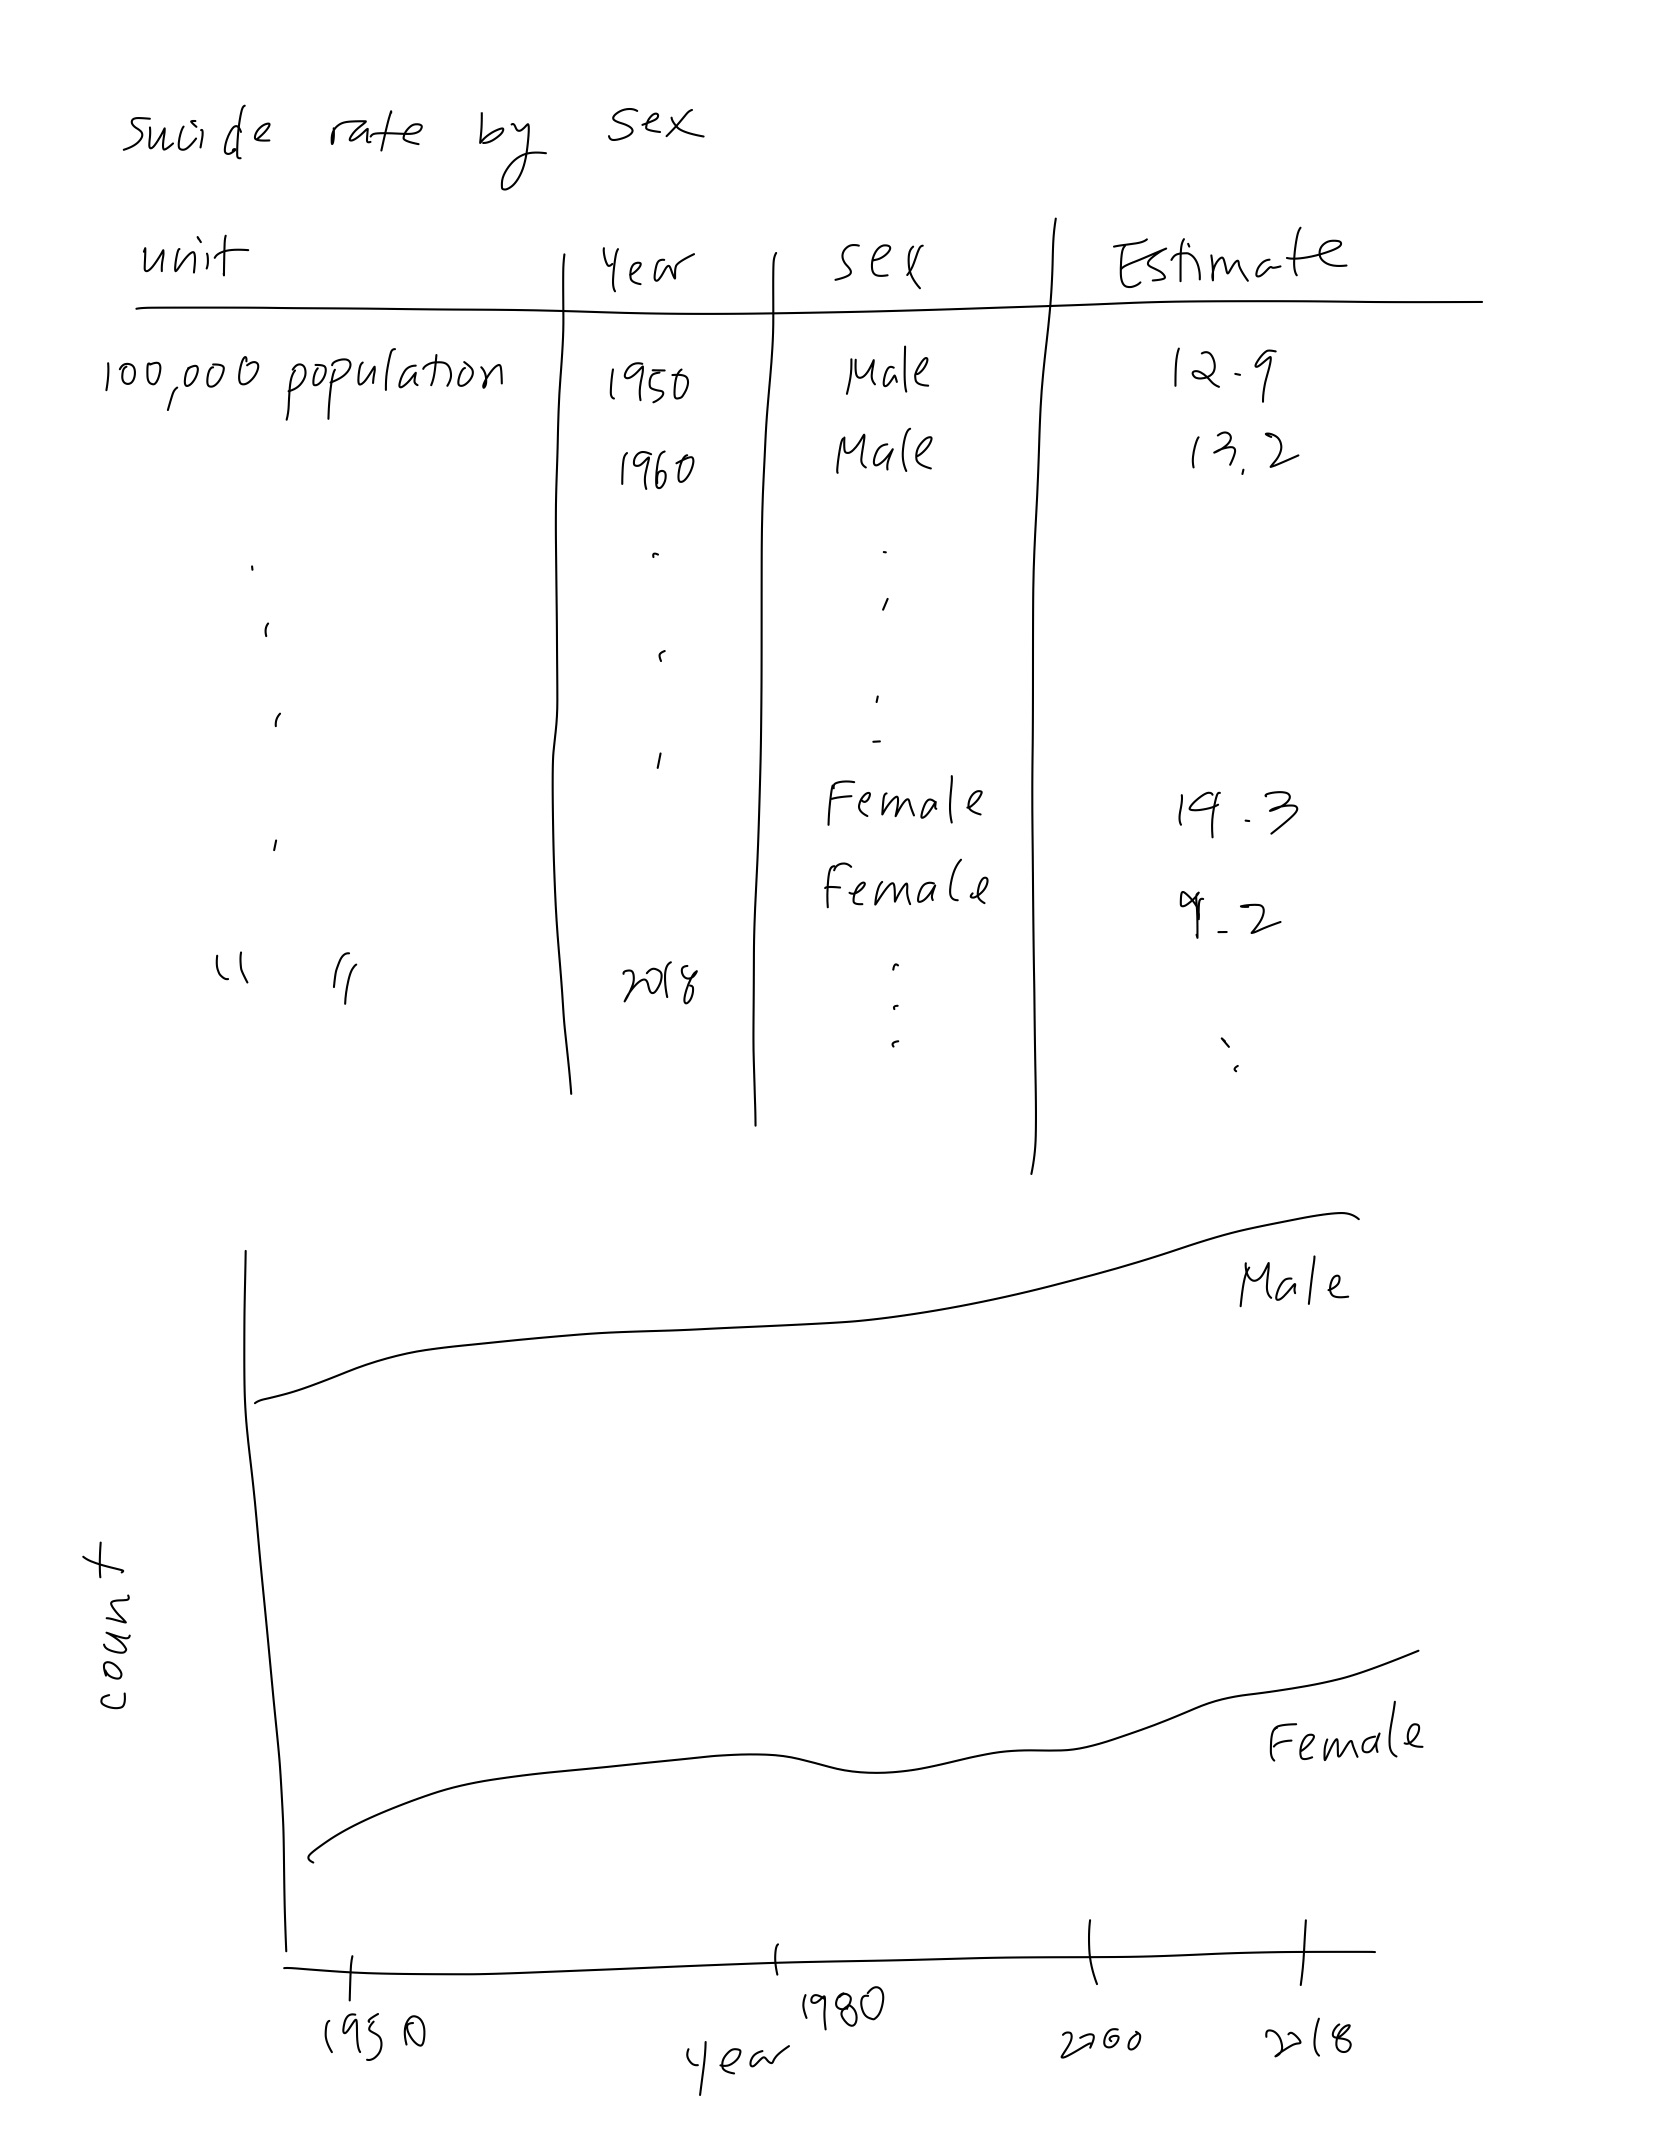 suicide rate by sex
unit Year sex Estimate
100,000 population 1950 Male 12.9
1960 Male 13.2
Female 19.3
Female 9.2
" " 2018
Male
count
Female
1950 1980 2000 2018
year